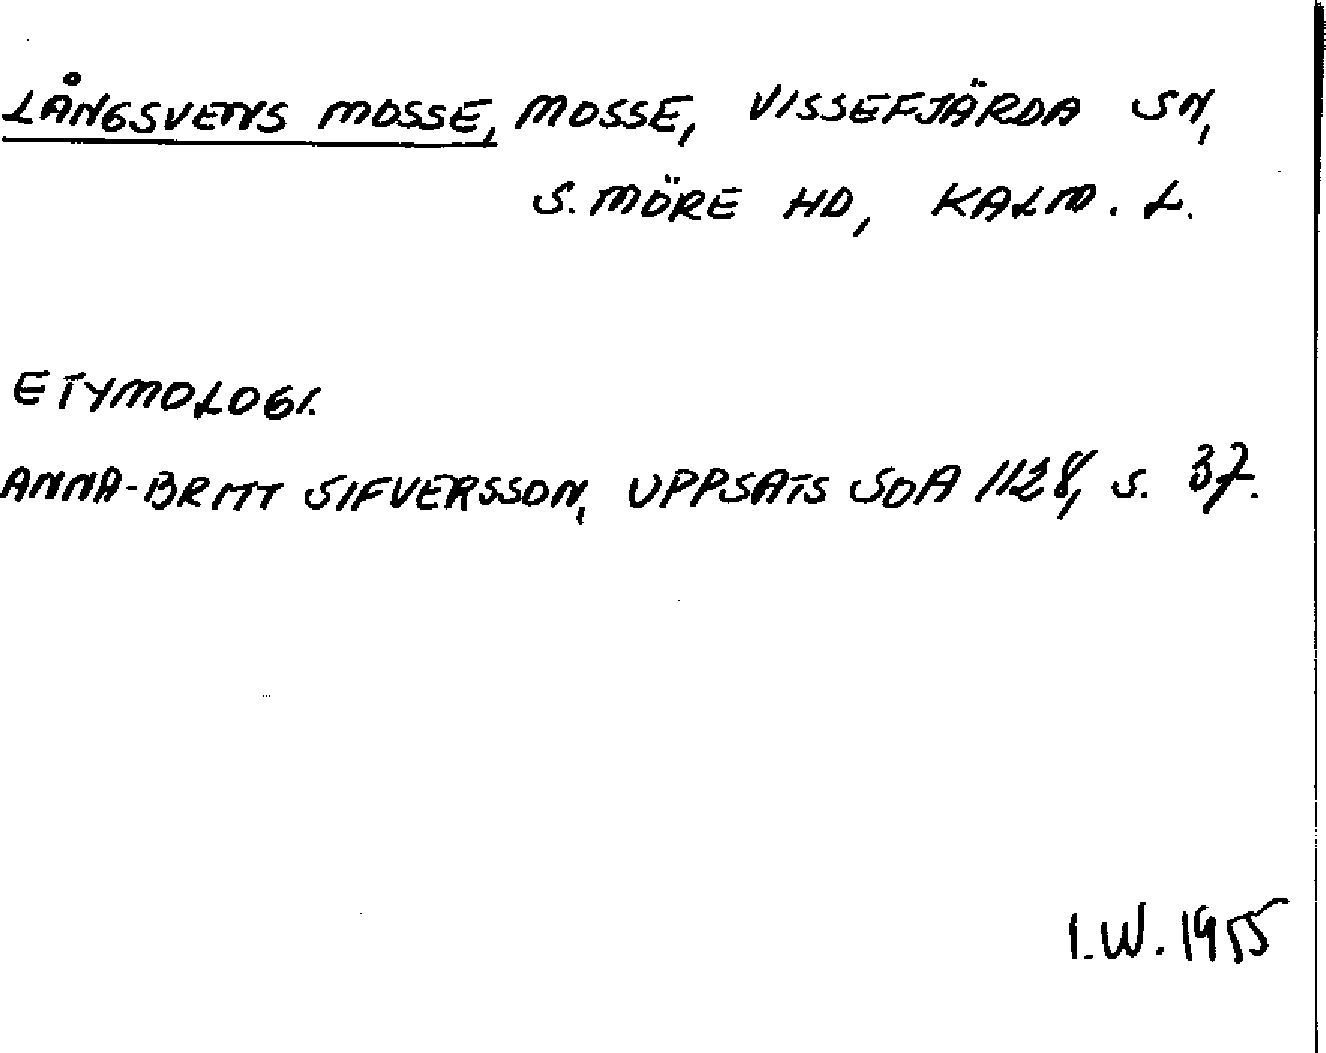 LÅNGSVENS MOSSE, MOSSE, VISSEFJÄRDA SN,
S. MÖRE HD, KALM. L.
ETYMOLOGI.
ANNA-BRITT SIFVERSSON, UPPSATS SOA 1128, S. 37.
I.W. 1955